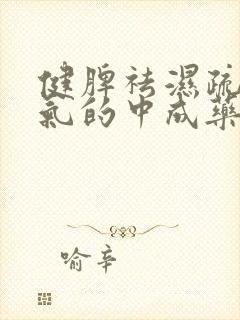 健脾祛濕疏
氣的中成藥
喻辛